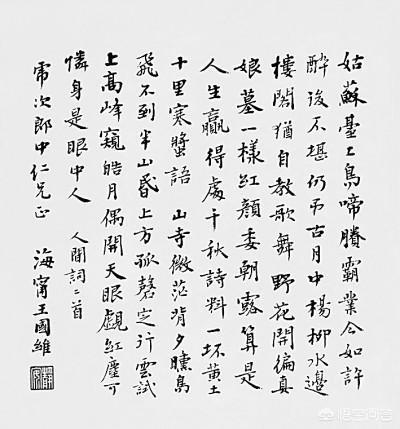 姑蘇臺上烏啼賸霸業今如許
醉後不堪仍弔古月中楊柳水邊
樓閣猶自教歌舞 野花開徧真
娘墓一樣紅顏委朝露算是
人生贏得處千秋詩料一抔黃土
十里寒螿語 山寺微茫背夕曛鳥
飛不到半山昏上方孤磬定行雲試
上高峰窺皓月偶開天眼覷紅塵可
憐身是眼中人 人間詞二首
次郎中仁兄正 海甯王國維
悟空问答